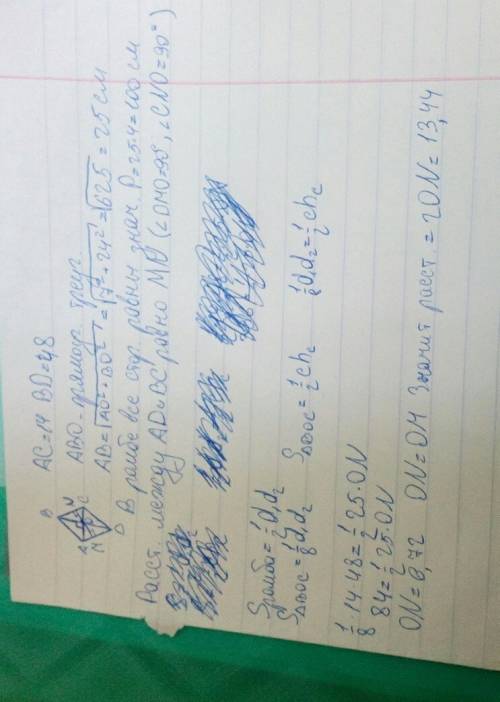 B
A
N
M
C
D
AC=14 BD=48
ABO - прямоуг. треуг.
AB=√AO²+BO²=√7²+24²=√625=25 см
В ромбе все стор. равны знач. P=25·4=100 см
Расст. между AD и BC равно MN (∠DMO=90°, ∠CNO=90°)
Sромба=1/2 d₁d₂
SΔBOC=1/8 d₁d₂ SΔBOC=1/2 ch_c 1/8 d₁d₂=1/2 ch_c
1/8·14·48=1/2 25·ON
84=1/2 25·ON
ON=6,72 ON=OM Значит расст.=2ON=13,44